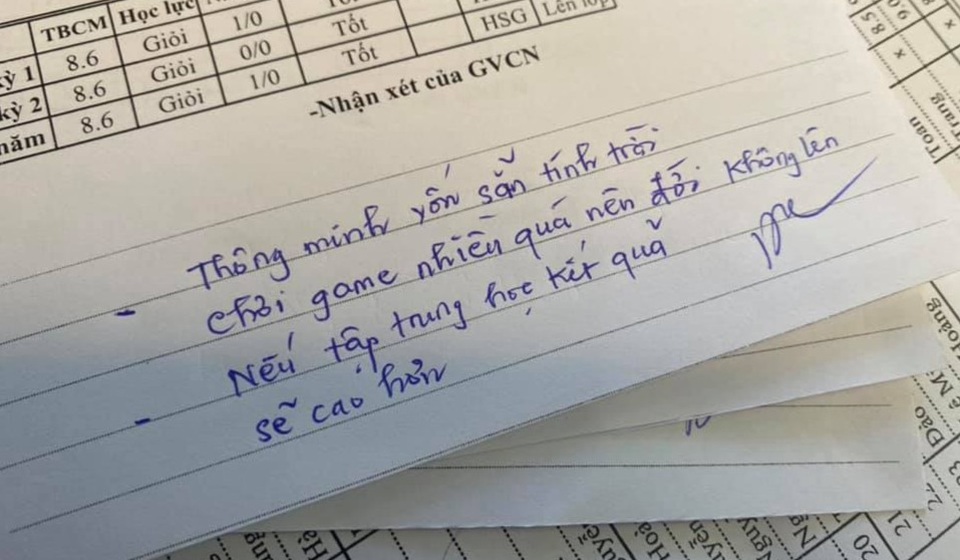 TBCM Học lực
kỳ 1 8.6 Giỏi 1/0 Tốt
kỳ 2 8.6 Giỏi 0/0 Tốt HSG Lên lớp
năm 8.6 Giỏi 1/0 Tốt
-Nhận xét của GVCN
- Thông minh vốn sẵn tính trời
chơi game nhiều quá nên đời không lên
- Nếu tập trung học kết quả
sẽ cao hơn
8.5
9.0
x
x
Toán
Trang
Hoàng
Đào
22
21
20